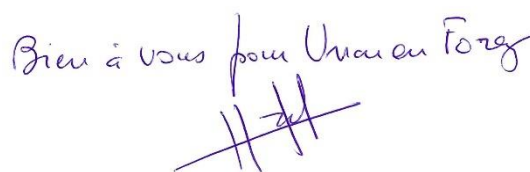 Bien à vous pour Unon en Forez